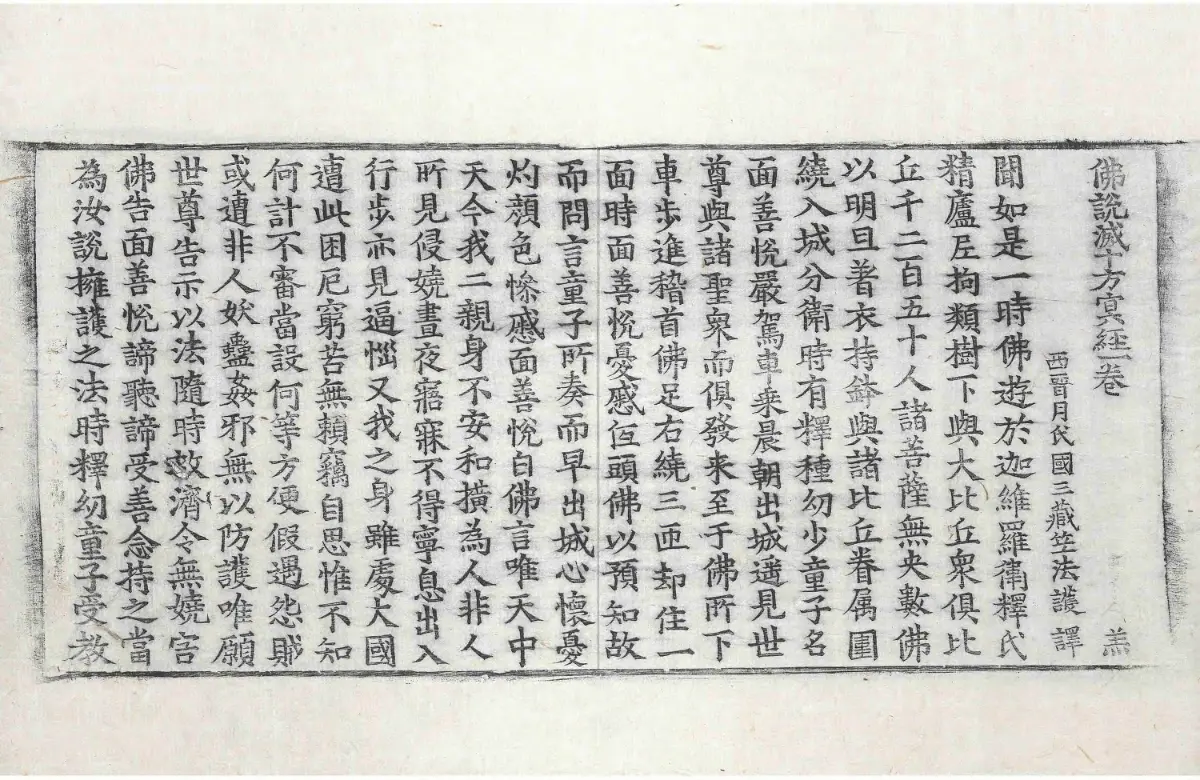 佛說滅十方冥經一卷 羔
西晉月氏國三藏竺法護 譯
聞如是一時佛遊於迦維羅衛釋氏
精廬尼拘類樹下與大比丘衆俱比
丘千二百五十人諸菩薩無央數佛
以明旦著衣持鉢與諸比丘眷属圍
繞入城分衛時有釋種幼少童子名
面善恱嚴駕車来晨朝出城遥見世
尊與諸聖衆而俱發来至于佛所下
車步進稽首佛足右繞三匝却住一
面時面善恱憂慼低頭佛以預知故
而問言童子所奏而早出城心懷憂
灼顔色慘慼面善恱白佛言唯天中
天今我二親身不安和橫為人非人
所見侵嬈晝夜寤寐不得寧息出入
行步亦見逼惱又我之身雖處大國
遭此困厄窮苦無賴竊自思惟不知
何計不審當設何等方便假遇怨賊
或遭非人妖蠱姦邪無以防護唯願
世尊告示以法隨時救濟令無嬈害
佛告面善恱諦聽諦受善念持之當
為汝說擁護之法時釋幼童子受教